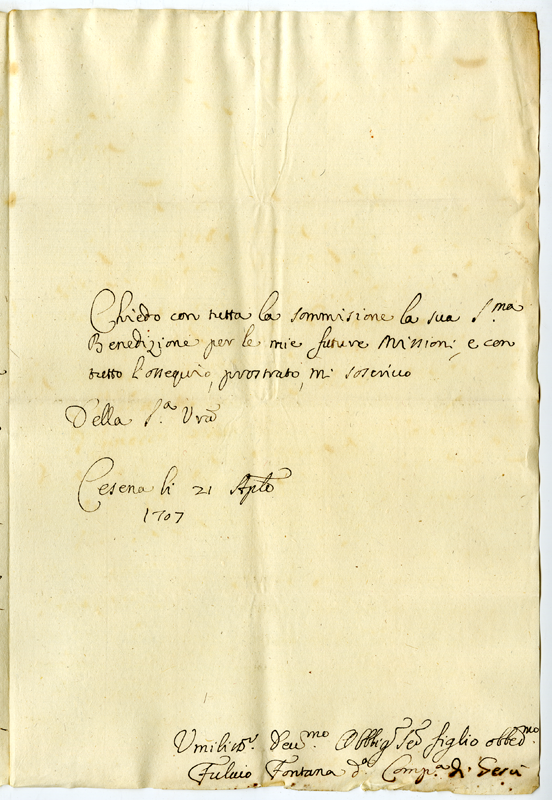 Chiedo con tutta la sommisione la sua S.ma
Benedizione per le mie future Missioni, e con
tutto l'ossequio, prostrato, mi soscrivo
Della S.a Vra
Cesena li 21 Aple
1707
Dev.mo figlio obbed.mo
Fulvio Fontana d.a Comp.a di Gesù